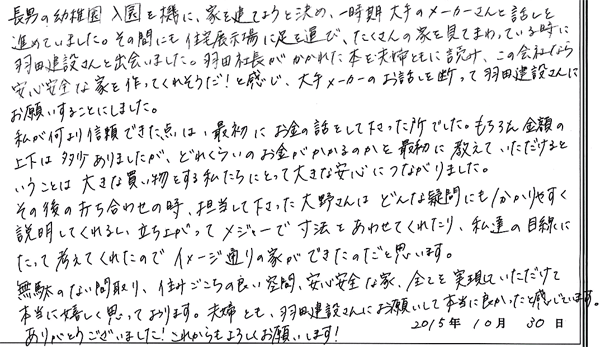 長男の幼稚園入園を機に、家を建てようと決め、一時期大手のメーカーさんと話しを
進めていました。その間にも住宅展示場に足を運び、たくさんの家を見てまわっている時に
羽田建設さんと出会いました。羽田社長がかかれた本を夫婦ともに読み、この会社なら
安心安全な家を作ってくれそうだ!と感じ、大手メーカーのお話しを断って羽田建設さんに
お願いすることにしました。
私が何より信頼できた点は、最初にお金の話をして下さった所でした。もちろん金額の
上下は多少ありましたが、どれくらいのお金がかかるのかを最初に教えていただけると
いうことは大きな買い物をする私たちにとって大きな安心につながりました。
その後の打ち合わせの時、担当して下さった大野さんはどんな疑問にも分かりやすく
説明してくれるし、立ち上がってメジャーで寸法をあわせてくれたり、私達の目線に
たって考えてくれたのでイメージ通りの家ができたのだと思います。
無駄のない間取り、住みごこちの良い空間、安心安全な家、全てを実現していただけて
本当に嬉しく思っております。夫婦とも、羽田建設さんにお願いして本当に良かったと感じています。
ありがとうございました!これからもよろしくお願いします!
2015年 10月 30日